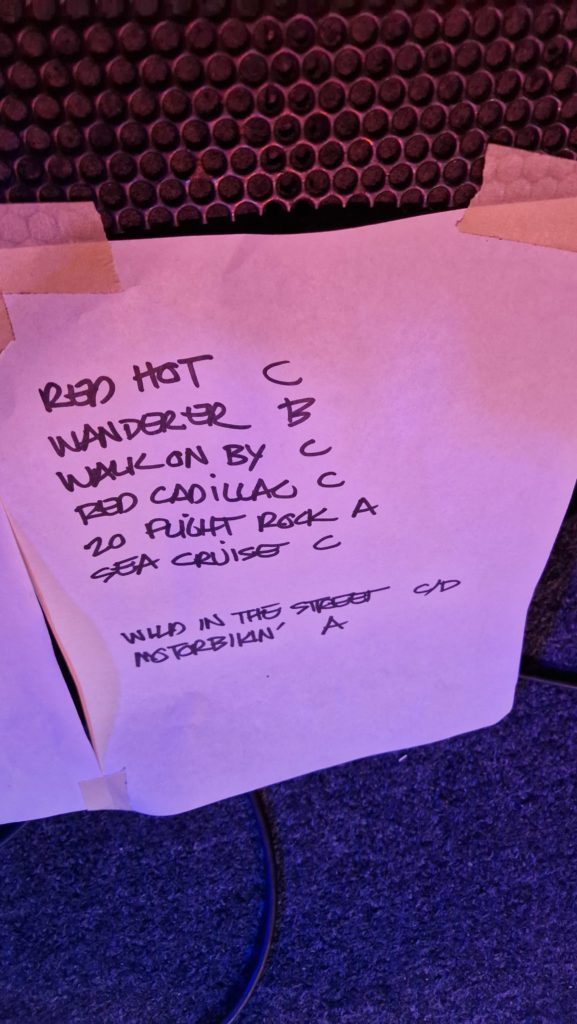 RED HOT C
WANDERER B
WALK ON BY C
RED CADILLAC C
20 FLIGHT ROCK A
SEA CRUISE C
WILD IN THE STREET C/D
MOTORBIKIN' A